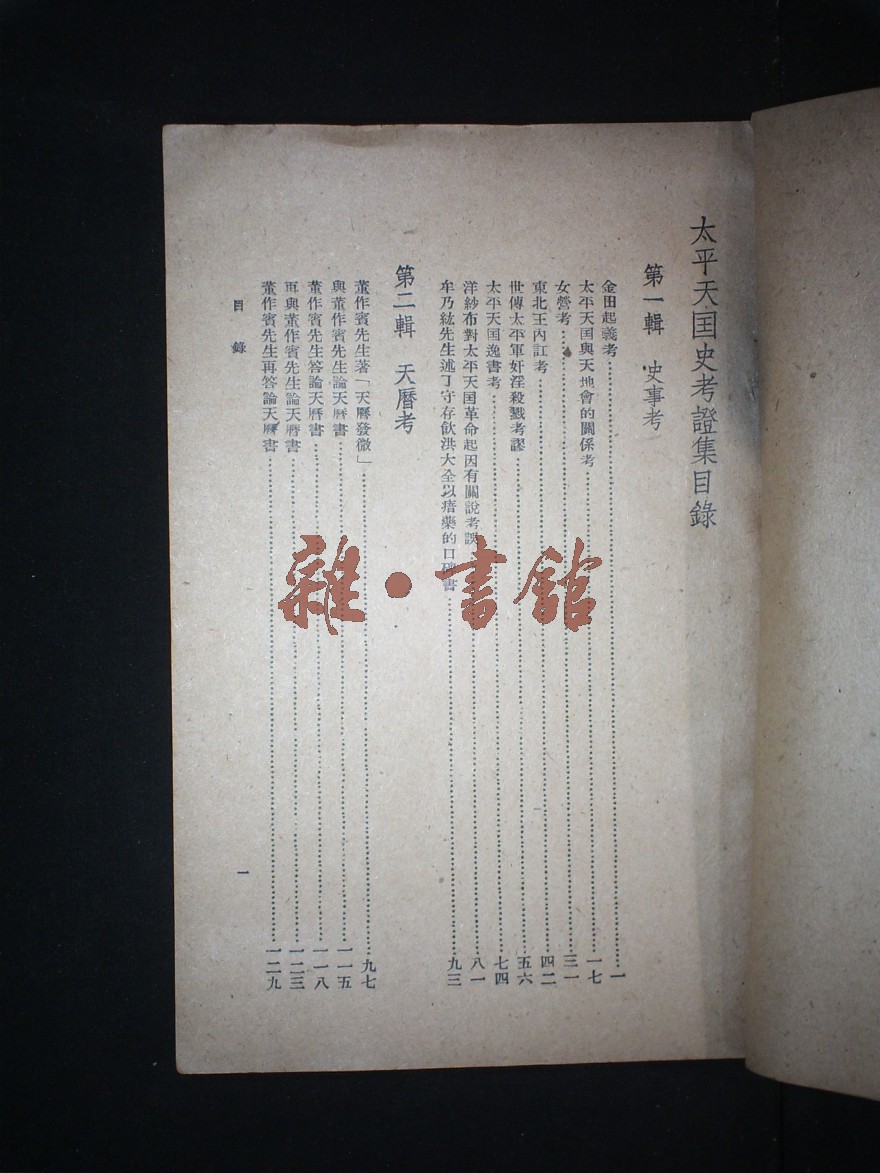 太平天囯史考證集目錄
第一輯 史事考
金田起義考……一
太平天囯與天地會的關係考……一七
女營考……三一
東北王內訌考……四二
世傳太平軍奸淫殺戮考謬……五六
太平天囯逸書考……七四
洋紗布對太平天囯革命起因有關說考誤……八一
牟乃紘先生述丁守存飲洪大全以瘖藥的口碑書……九三
第二輯 天曆考
董作賓先生著「天曆發微」……九七
與董作賓先生論天曆書……一一五
董作賓先生答論天曆書……一一八
再與董作賓先生論天曆書……一二三
董作賓先生再答論天曆書……一二九
目錄
一
雜·書館